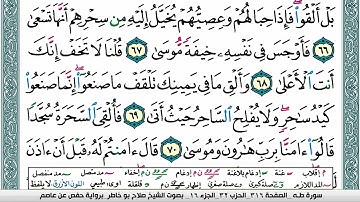 بَلْ أَلْقُوا۟ فَإِذَا حِبَالُهُمْ وَعِصِيُّهُمْ يُخَيَّلُ إِلَيْهِ مِن سِحْرِهِمْ أَنَّهَا تَسْعَىٰ
٦٦ فَأَوْجَسَ فِى نَفْسِهِۦ خِيفَةً مُّوسَىٰ ٦٧ قُلْنَا لَا تَخَفْ إِنَّكَ
أَنتَ ٱلْأَعْلَىٰ ٦٨ وَأَلْقِ مَا فِى يَمِينِكَ تَلْقَفْ مَا صَنَعُوٓا۟ إِنَّمَا صَنَعُوا۟
كَيْدُ سَٰحِرٍ وَلَا يُفْلِحُ ٱلسَّاحِرُ حَيْثُ أَتَىٰ ٦٩ فَأُلْقِىَ ٱلسَّحَرَةُ سُجَّدًا
قَالُوٓا۟ ءَامَنَّا بِرَبِّ هَٰرُونَ وَمُوسَىٰ ٧٠ قَالَ ءَامَنتُمْ لَهُۥ قَبْلَ أَنْ ءَاذَنَ
سورة طـه الصفحة ٣١٦ الحزب ٣٢ الجزء ١٦ بصوت الشيخ صلاح بو خاطر برواية حفص عن عاصم